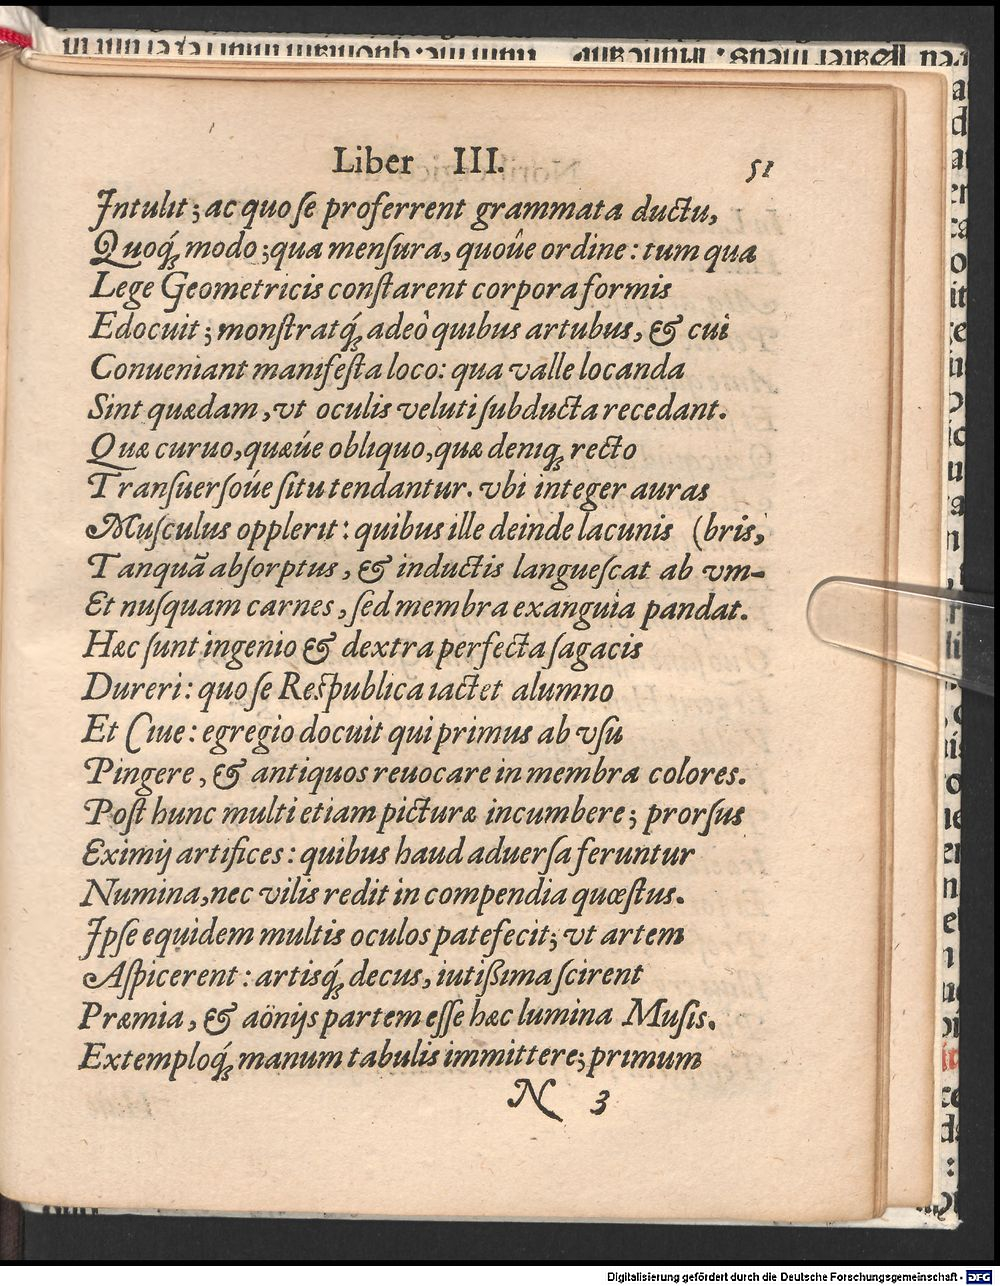 Liber III. 51
Intulit; ac quo se proferrent grammata ductu,
Quoq́; modo; qua mensura, quoûe ordine: tum qua
Lege Geometricis constarent corpora formis
Edocuit; monstratq́; adeò quibus artubus, & cui
Conueniant manifesta loco: qua valle locanda
Sint quædam, vt oculis veluti subducta recedant.
Quæ curuo, quæúe obliquo, quæ deniq; recto
Transuersoúe situ tendantur. vbi integer auras
Musculus opplerit: quibus ille deinde lacunis (bris,
Tanquā absorptus, & inductis languescat ab vm-
Et nusquam carnes, sed membra exanguia pandat.
Hæc sunt ingenio & dextra perfecta sagacis
Dureri: quo se Respublica iactet alumno
Et Ciue: egregio docuit qui primus ab vsu
Pingere, & antiquos reuocare in membra colores.
Post hunc multi etiam picturæ incumbere; prorsus
Eximij artifices: quibus haud aduersa feruntur
Numina, nec vilis redit in compendia quæstus.
Ipse equidem multis oculos patefecit; vt artem
Aspicerent: artisq́; decus, iutißima scirent
Præmia, & aönijs partem esse hæc lumina Musis.
Extemploq́; manum tabulis immittere; primum
N 3
Digitalisierung gefördert durch die Deutsche Forschungsgemeinschaft - DFG